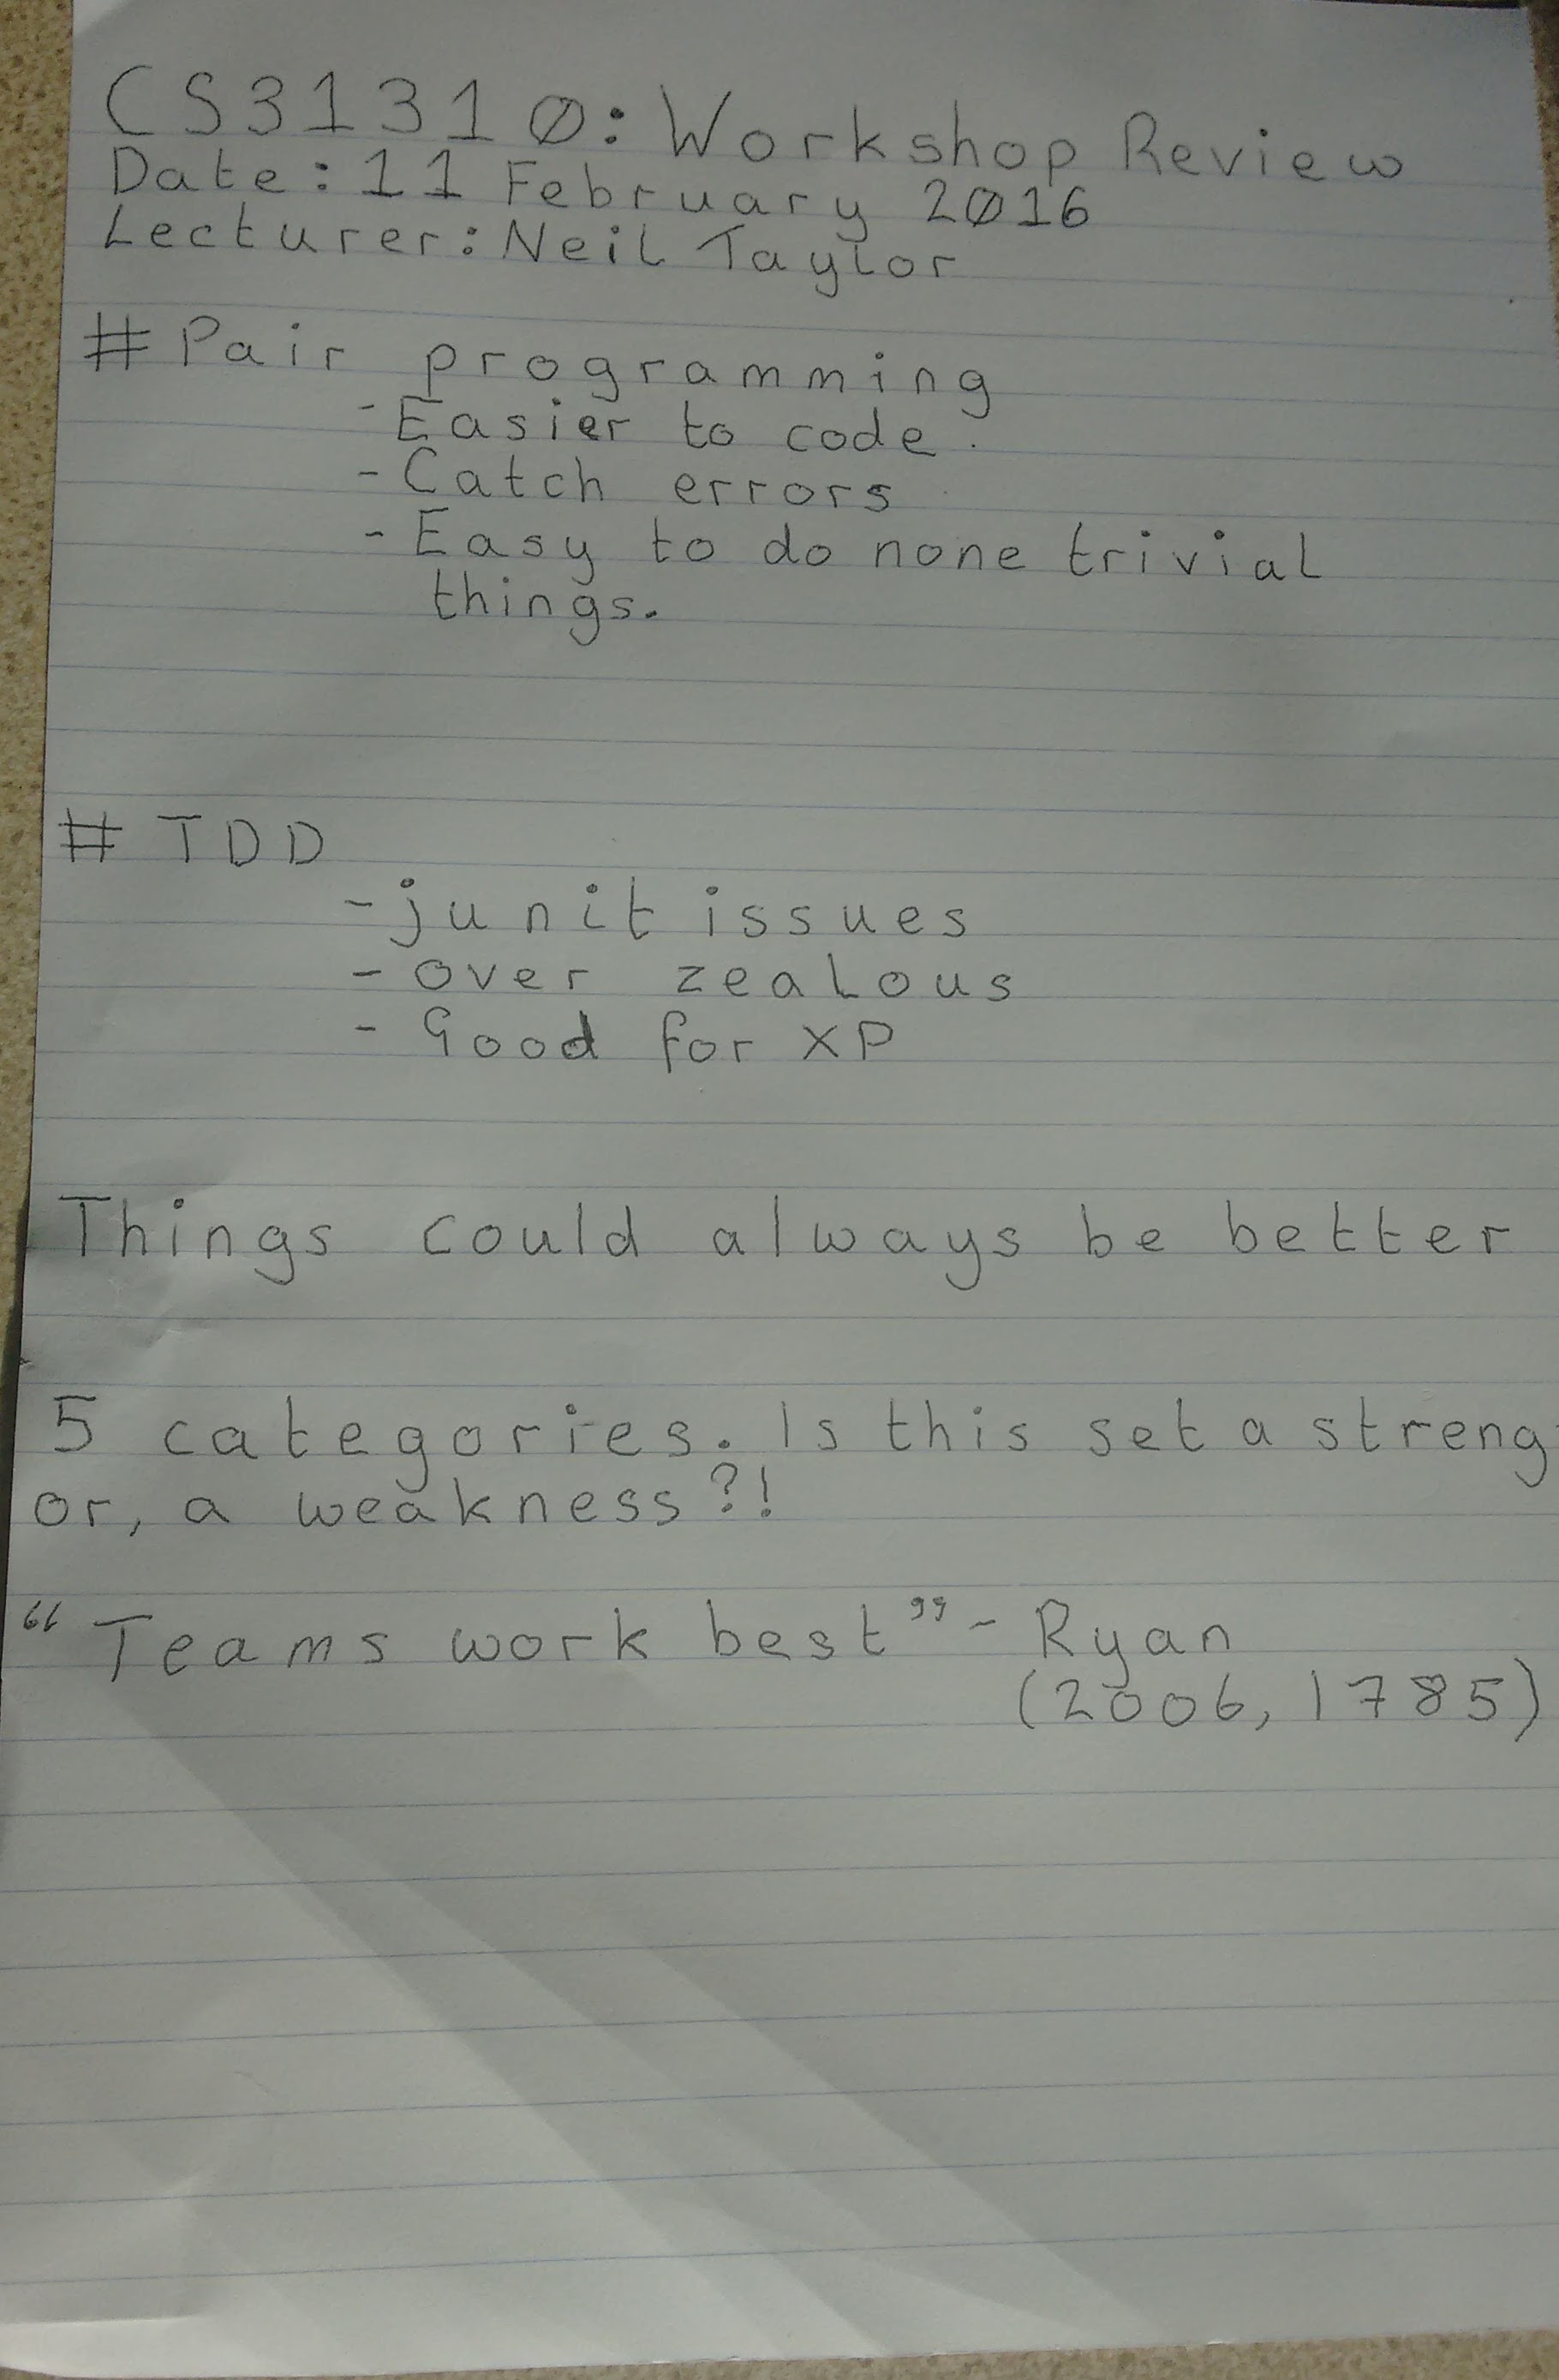 CS31310: Workshop Review
Date: 11 February 2016
Lecturer: Neil Taylor
# Pair programming
- Easier to code.
- Catch errors
- Easy to do none trivial
things.
# TDD
- junit issues
- over zealous
- Good for XP
Things could always be better
5 categories. Is this set a streng
or, a weakness?!
"Teams work best" - Ryan
(2006, 1785)